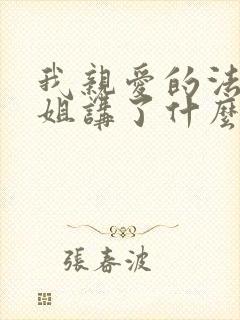 我親愛的法
姐講了什麼
張春波